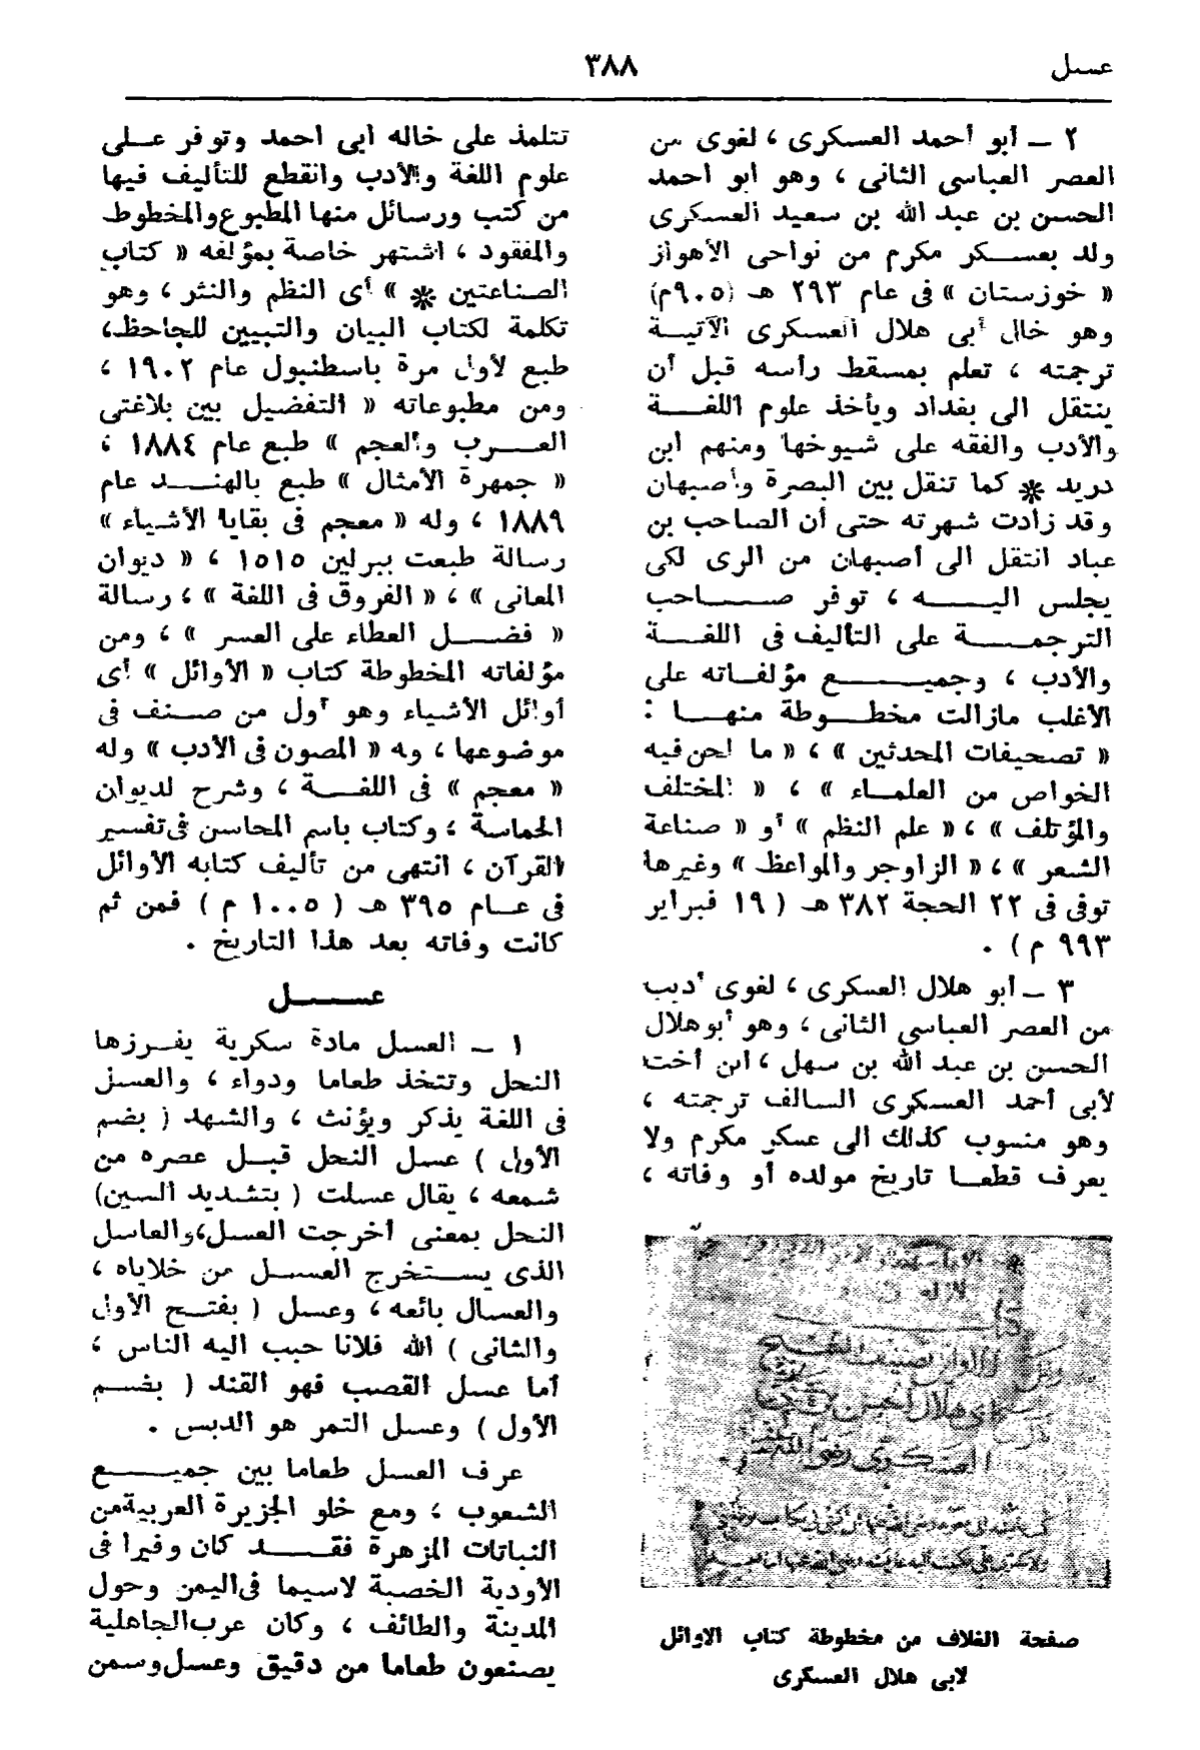 عسل
٣٨٨
٢ ــ أبو أحمد العسكرى ، لغوى من
العصر العباسى الثانى ، وهو أبو أحمد
الحسن بن عبد الله بن سعيد العسكرى
ولد بعسكر مكرم من نواحى الأهواز
« خوزستان » فى عام ٢٩٣ هـ (٩٠٥م)
وهو خال أبى هلال العسكرى الآتية
ترجمته ، تعلم بمسقط رأسه قبل أن
ينتقل الى بغداد ويأخذ علوم اللغة
والأدب والفقه على شيوخها ومنهم ابن
دريد * كما تنقل بين البصرة وأصبهان
وقد زادت شهرته حتى أن الصاحب بن
عباد انتقل الى أصبهان من الرى لكى
يجلس اليه ، توفر صاحب
الترجمة على التأليف فى اللغة
والأدب ، وجميع مؤلفاته على
الأغلب مازالت مخطوطة منها :
« تصحيفات المحدثين » ، « ما لحن فيه
الخواص من العلماء » ، « المختلف
والمؤتلف » ، « علم النظم » أو « صناعة
الشعر » ، « الزاوجر والمواعظ » وغيرها
توفى فى ٢٢ الحجة ٣٨٢ هـ ( ١٩ فبراير
٩٩٣ م ) .
٣ ــ أبو هلال العسكرى ، لغوى أديب
من العصر العباسى الثانى ، وهو أبو هلال
الحسن بن عبد الله بن سهل ، ابن أخت
لأبى أحمد العسكرى السالف ترجمته ،
وهو منسوب كذلك الى عسكر مكرم ولا
يعرف قطعا تاريخ مولده أو وفاته ،
صفحة الغلاف من مخطوطة كتاب الاوائل
لابى هلال العسكرى
تتلمذ على خاله أبى أحمد وتوفر على
علوم اللغة والأدب وانقطع للتأليف فيها
من كتب ورسائل منها المطبوع والمخطوط
والمفقود ، اشتهر خاصة بمؤلفه « كتاب
الصناعتين * » أى النظم والنثر ، وهو
تكلمة لكتاب البيان والتبيين للجاحظ،
طبع لأول مرة باسطنبول عام ١٩٠٢ ،
ومن مطبوعاته « التفضيل بين بلاغتى
العرب والعجم » طبع عام ١٨٨٤ ،
« جمهرة الأمثال » طبع بالهند عام
١٨٨٩ ، وله « معجم فى بقايا الأشياء »
رسالة طبعت ببرلين ١٥١٥ ، « ديوان
المعانى » ، « الفروق فى اللغة » ، رسالة
« فضل العطاء على العسر » ، ومن
مؤلفاته المخطوطة كتاب « الأوائل » أى
أوائل الأشياء وهو أول من صنف فى
موضوعها ، وبه « المصون فى الأدب » وله
« معجم » فى اللغة ، وشرح لديوان
الحماسة ، وكتاب باسم المحاسن فى تفسير
القرآن ، انتهى من تأليف كتابه الأوائل
فى عام ٣٩٥ هـ ( ١٠٠٥ م ) فمن ثم
كانت وفاته بعد هذا التاريخ .
عسل
١ ــ العسل مادة سكرية يفرزها
النحل وتتخذ طعاما ودواء ، والعسل
فى اللغة يذكر ويؤنث ، والشهد ( بضم
الأول ) عسل النحل قبل عصره من
شمعه ، يقال عسلت ( بتشديد السين)
النحل بمعنى أخرجت العسل، والعاسل
الذى يستخرج العسل من خلاياه ،
والعسال بائعه ، وعسل ( بفتح الأول
والثانى ) الله فلانا حبب اليه الناس ،
أما عسل القصب فهو القند ( بضم
الأول ) وعسل التمر هو الدبس .
عرف العسل طعاما بين جميع
الشعوب ، ومع خلو الجزيرة العربية من
النباتات المزهرة فقد كان وفيرا فى
الأودية الخصبة لاسيما فى اليمن وحول
المدينة والطائف ، وكان عرب الجاهلية
يصنعون طعاما من دقيق وعسل وسمن